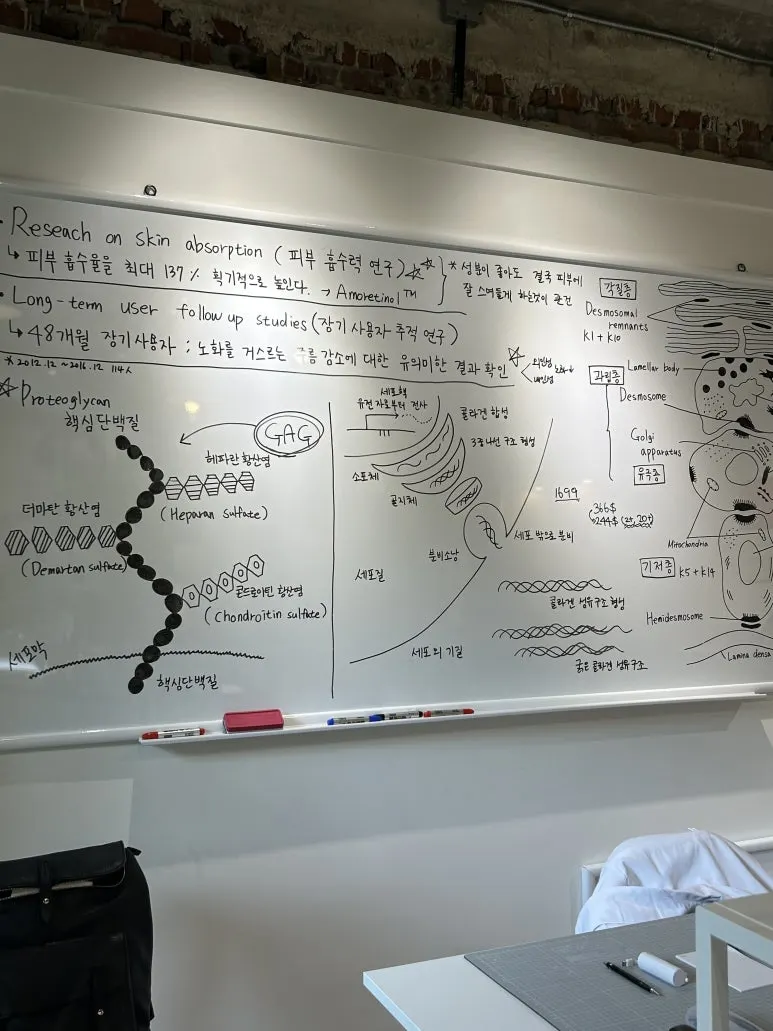 · Reseach on skin absorption (피부 흡수력 연구)
↳ 피부 흡수율을 최대 137% 획기적으로 높인다. → Amoretinol™
* 성분이 좋아도 결국 피부에
잘 스며들게 하는것이 관건
· Long-term user follow up studies (장기 사용자 추적 연구)
↳ 48개월 장기사용자 : 노화를 거스르는 주름 감소에 대한 유의미한 결과 확인
* 2012.12 ~ 2016.12 114人
Proteoglycan
핵심단백질
GAG
헤파란 황산염
(Heparan sulfate)
더마탄 황산염
(Demartan sulfate)
콘드로이틴 황산염
(Chondroitin sulfate)
세포막
핵심단백질
세포핵
유전자로부터 전사
콜라겐 합성
3중나선 구조 형성
소포체
골지체
분비소낭
세포 밖으로 분비
세포질
세포외 기질
콜라겐 섬유구조 형성
굵은 콜라겐 섬유구조
1699
366$
244$
각질층
Desmosomal
remnants
K1 + K10
과립층
Lamellar body
Desmosome
Golgi
apparatus
유극층
Mitochondria
기저층
K5 + K14
Hemidesmosome
Lamina densa